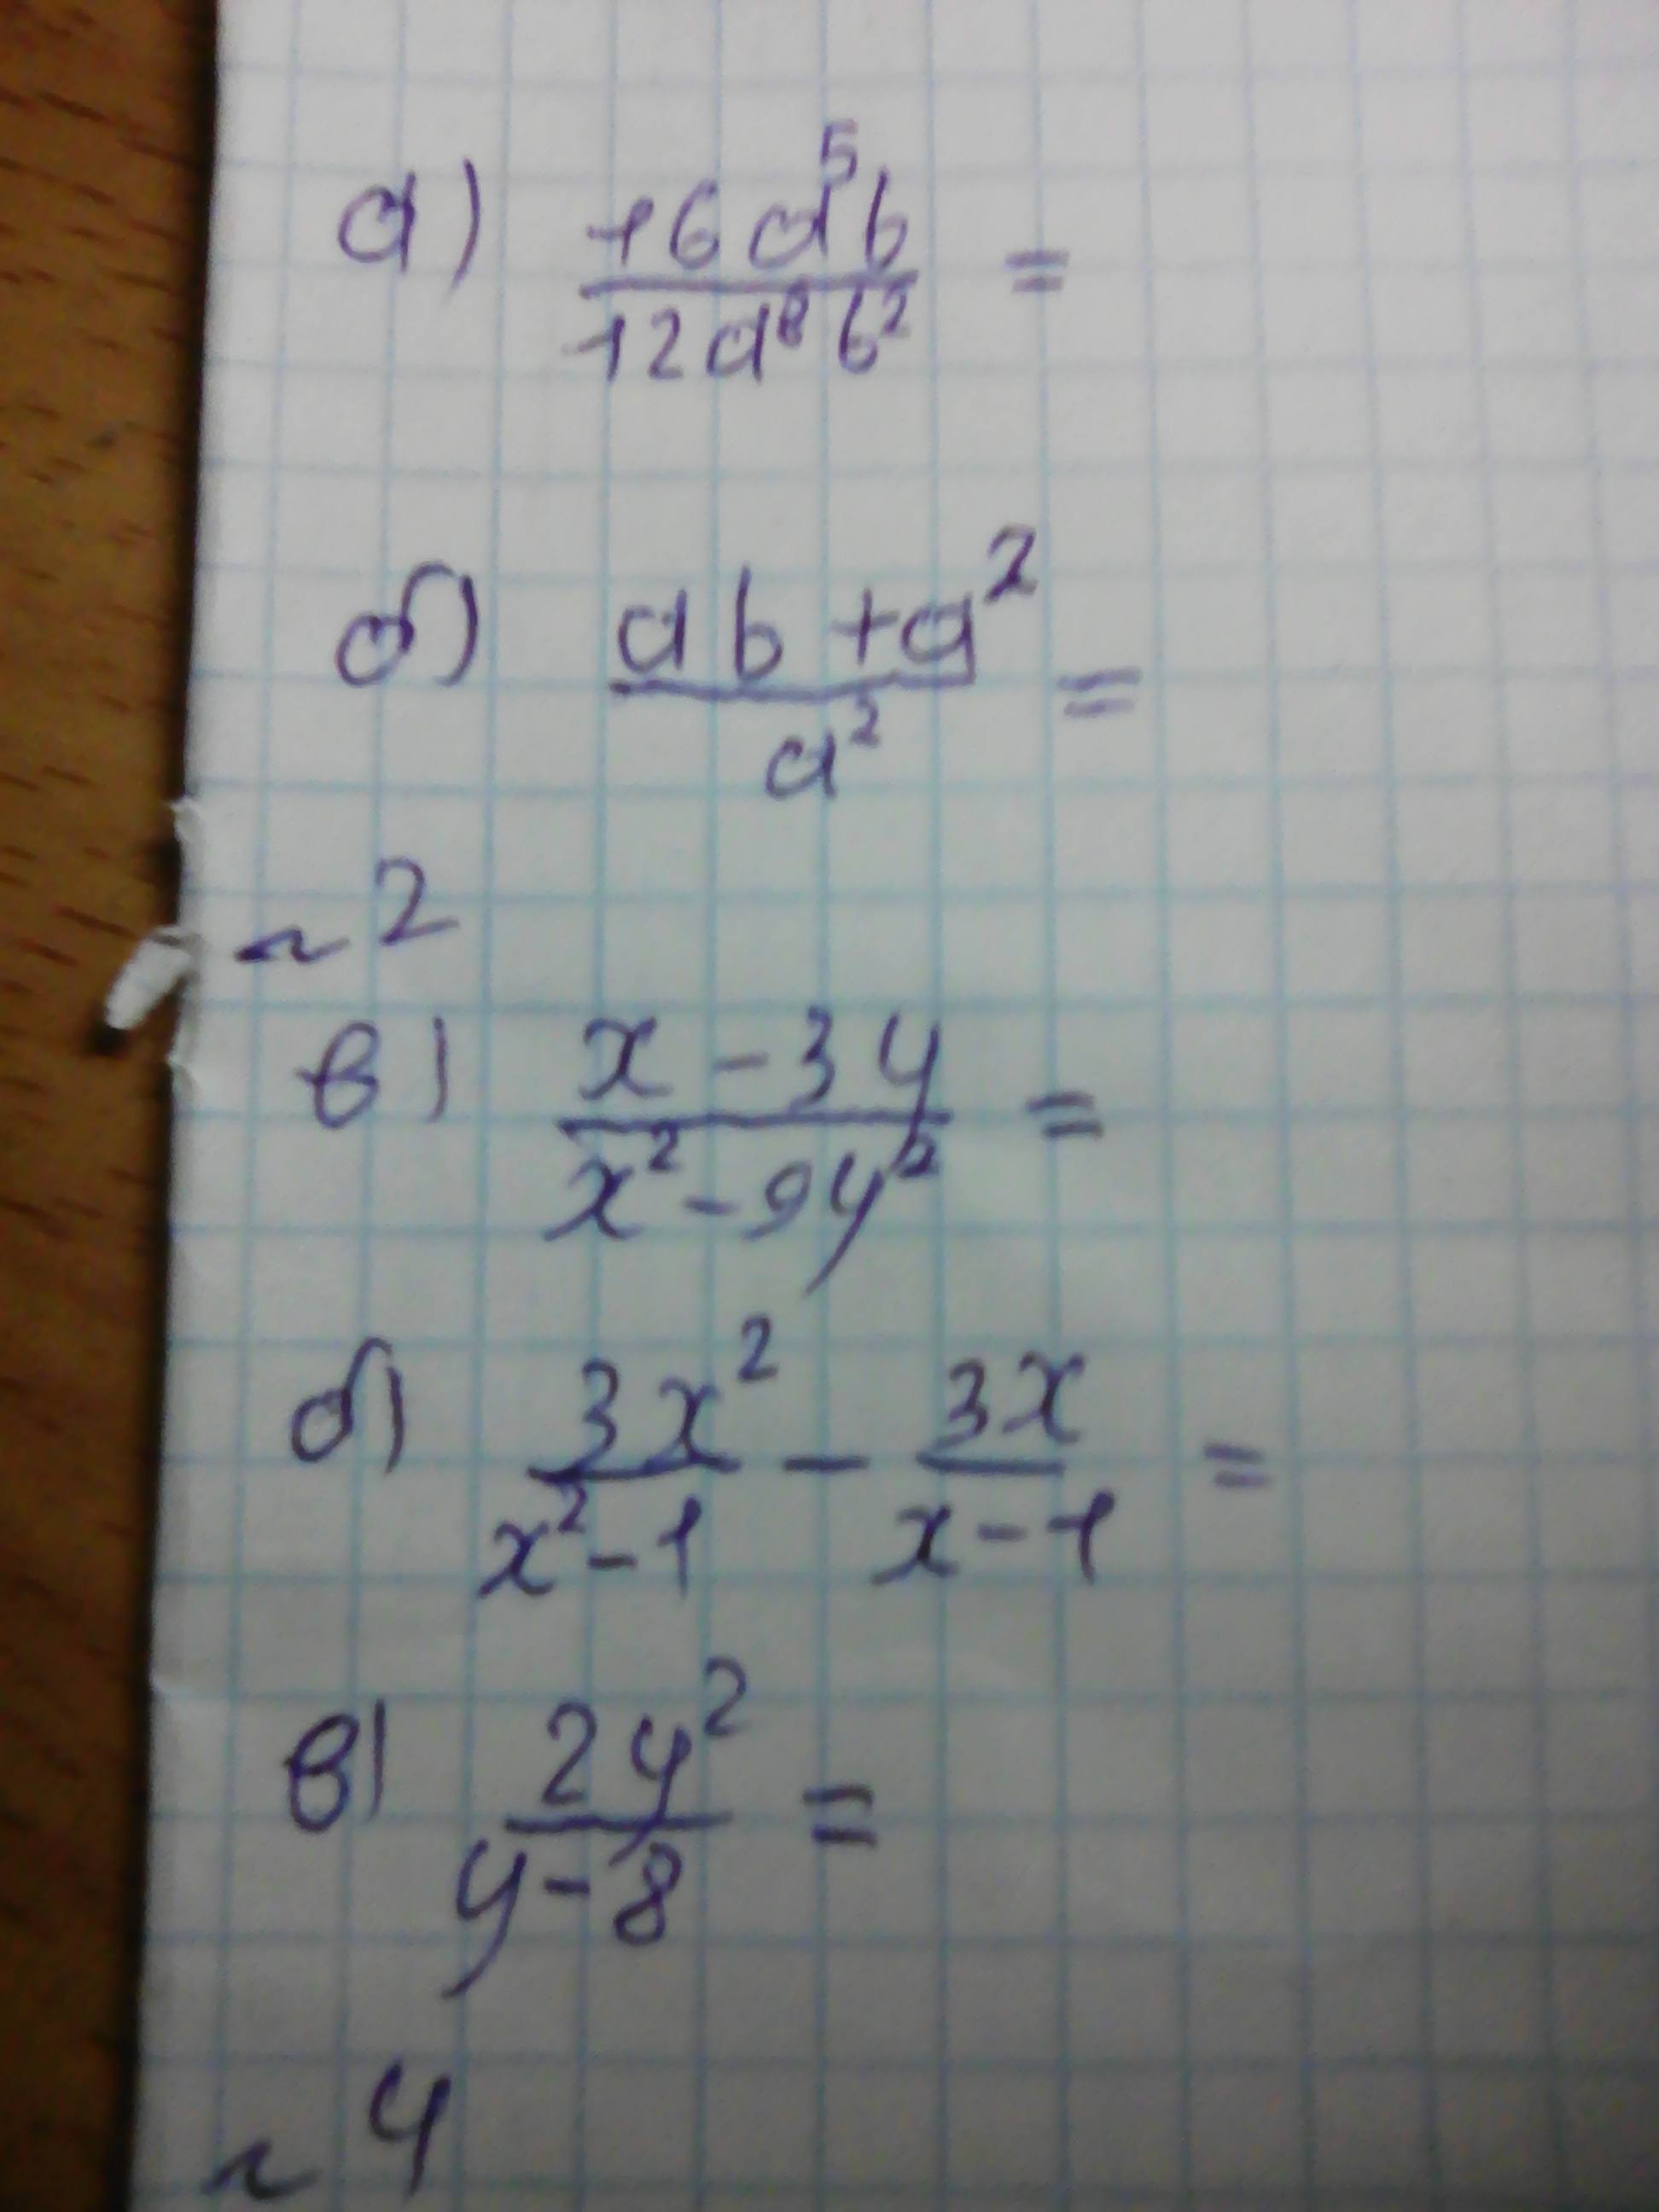 а) 16a⁵b / 12a⁸b² =
б) ab + a² / a² =
~ 2
в) x - 3y / x² - 9y² =
б) 3x² / x² - 1 - 3x / x - 1 =
в) 2y² / y - 8 =
~ 4